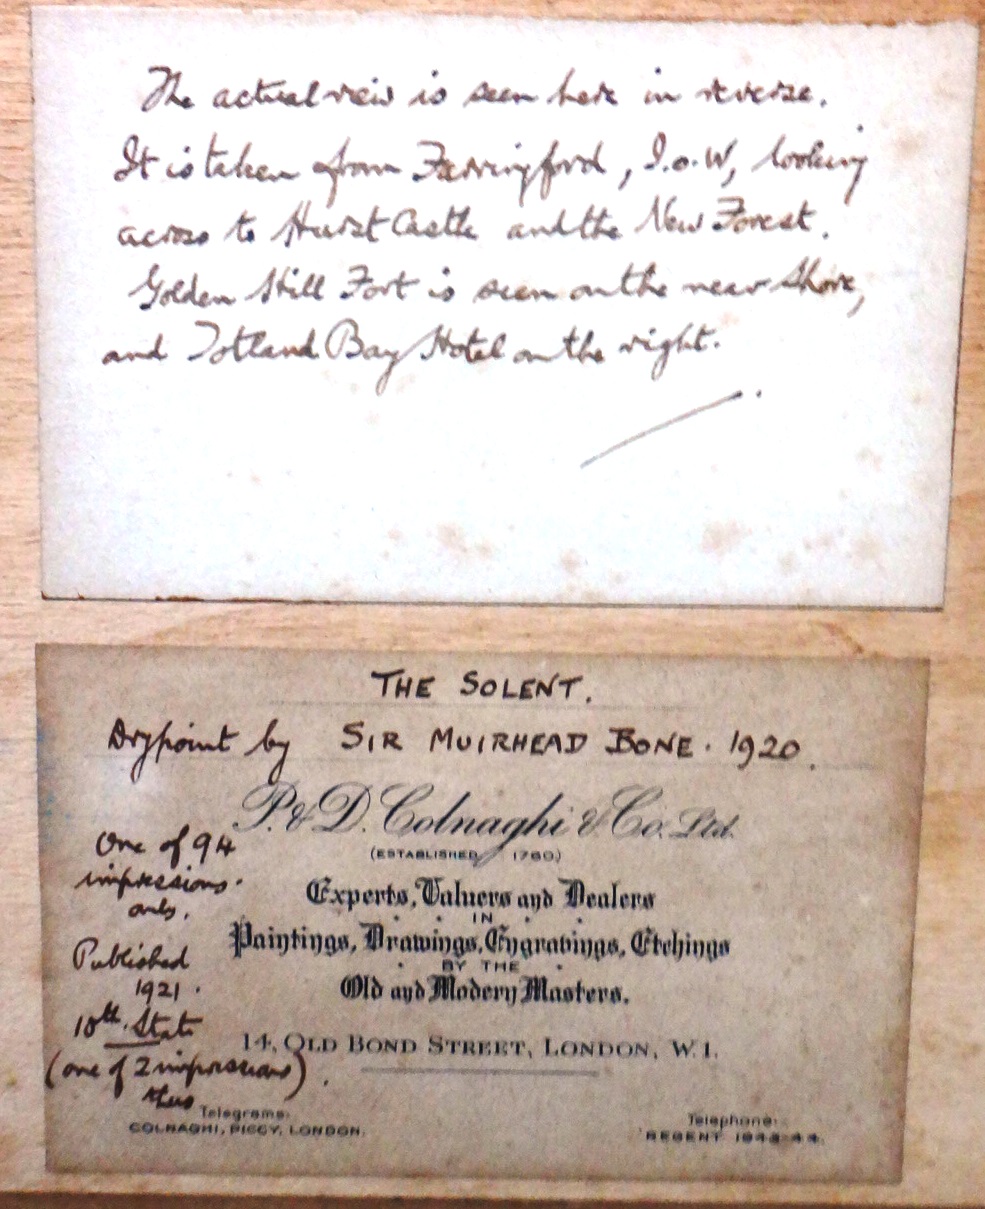 The actual view is seen here in reverse.
It is taken from Farringford, I.o.W, looking
across to Hurst Castle and the New Forest.
Golden Hill Fort is seen on the near shore,
and Totland Bay Hotel on the right.
THE SOLENT.
Drypoint by SIR MUIRHEAD BONE. 1920.
One of 94
impressions.
only.
Published
1921.
10th. State
(one of 2 impressions)
thus
P. & D. Colnaghi & Co. Ltd
(ESTABLISHED 1760)
Experts, Valuers and Dealers
IN
Paintings, Drawings, Engravings, Etchings
BY THE
Old and Modern Masters.
14, OLD BOND STREET, LONDON, W.1.
Telegrams:
COLNAGHI, PICCY, LONDON.
Telephone:
REGENT 1943-44.